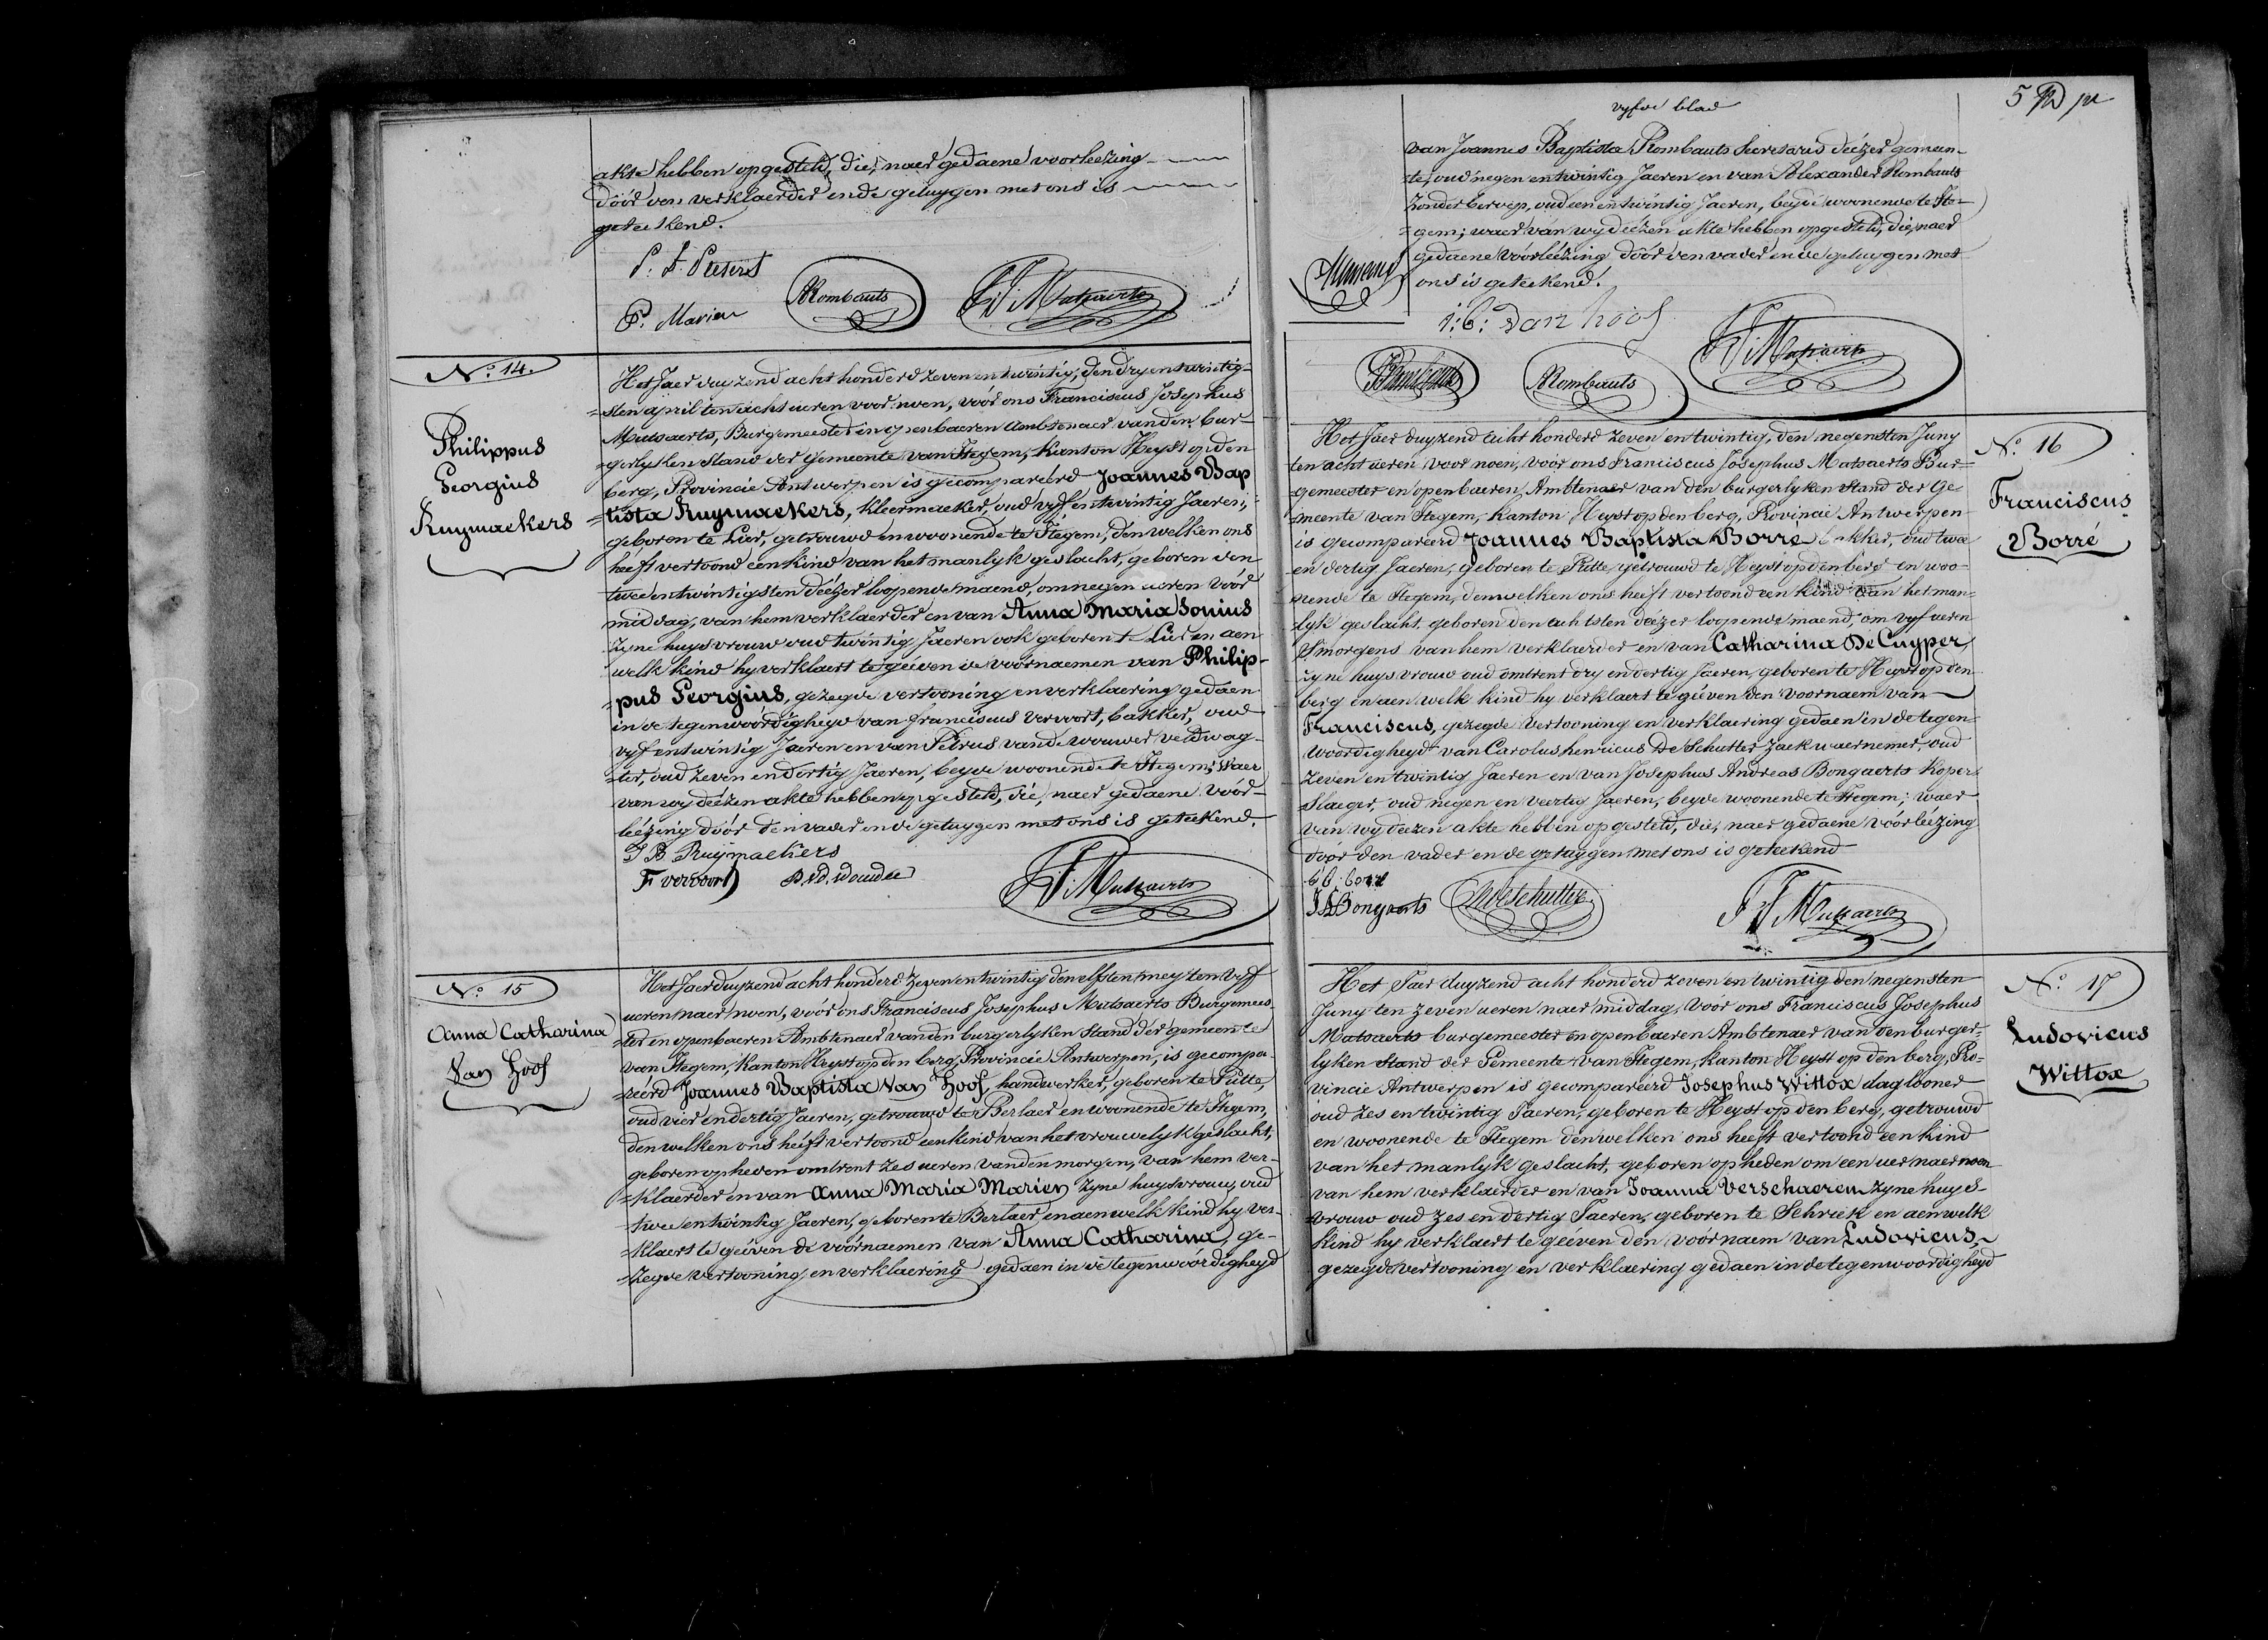 akte hebben opgesteld, die, naer gedaene voorleezing
dóór den verklaerder en de getuygen met ons is
geteekend.
P. F. Peeters
P. Marien
ARombauts
F. J. Mutsaerts
N.º 14.
Philippus
Georgius
Ruymaekers
Het Jaer duyzend acht honderd zeven en twintig, den dry en twintig-
=sten april ten acht ueren voor noen, vóór ons Franciscus Josephus
Mutsaerts, Burgemeester en openbaeren Ambtenaer van den bur-
=gerlyken Stand der Gemeente van Itegem, Kanton Heyst op den
berg, Provincie Antwerpen is gecompareérd Joannes Bap
=tista Ruymaekers, kleermaeker, oud vyf en twintig Jaeren,
geboren te Lier, getrouwd en woonende te Itegem, den welken ons
heéft vertoond een kind van het manlyk geslacht, geboren den
twee en twintigsten deézer loopende maend, om negen ueren vóór
middag, van hem verklaerder en van Anna Maria Sonius
zyne huysvrouw oud twintig Jaeren ook geboren te Lier en aen
welk kind hy verklaert te geéven de vóórnaemen van Philip-
=pus Georgius, gezegde vertooning en verklaering gedaen
in de tegenwóórdigheyd van franciscus vervoort, bakker, oud
vyf en twintig Jaeren en van Petrus van de wouwer veldwag-
=ter, oud zeven en dertig Jaeren, beyde woonende te Itegem; waer
van wy deézen akte hebben opgesteld, die, naer gedaene vóór-
leézing dóór den vader en de getuygen met ons is geteekend.
J B Ruijmaekers
F vervoort
P. V. D. Wouwer
F. J. Mutsaerts
N.º 15
Anna Catharina
Van Hoof
Het Jaer duyzend acht honderd zeven en twintig den elfsten mey ten vyf
ueren naer noen, vóór ons Franciscus Josephus Mutsaerts Burgemees-
=ter en openbaeren Ambtenaer van den burgerlyken Stand der gemeente
van Itegem, Kanton Heyst op den berg, Provincie Antwerpen, is gecompa-
=reérd Joannes Baptista Van Hoof, handwerker, geboren te Putte,
oud vier en dertig Jaeren, getrouwd te Berlaer en woonende te Itegem,
den welken ons heéft vertoond een kind van het vrouwelyk geslacht,
geboren op heden omtrent zes ueren van den morgen, van hem ver-
=klaerder en van Anna Maria Marien zyne huysvrouw, oud
twee en twintig Jaeren, geboren te Berlaer, en aen welk kind hy ver-
=klaert te geéven de vóórnaemen van Anna Catharina, ge-
=zegde vertooning en verklaering gedaen in de tegenwóórdigheyd
vyfde blad
5
van Joannes Baptista Rombauts secretaris deézer gemeen-
=te, oud negen en twintig Jaeren en van Alexander Rombauts
zonder beroep, oud een en twintig Jaeren, beyde woonende te Ite-
=gem; waer van wy deézen akte hebben opgesteld, die, naer
gedaene vóórleézing dóór den vader en de getuygen met
ons is geteekend.
i: b: van hoof
JBRombauts
ARombauts
F. J. Mutsaerts
N.º 16
Franciscus
Borré
Het Jaer duyzend acht honderd zeven en twintig, den negensten Juny
ten acht ueren voor noen, vóór ons Franciscus Josephus Mutsaerts Bur=
=gemeester en openbaeren Ambtenaer van den burgerlyken Stand der Ge-
=meente van Itegem, kanton Heyst op den berg, Provincie Antwerpen
is gecompareerd Joannes Baptista Borré bakker, oud twee
en dertig Jaeren, geboren te Putte, getrouwd te Heyst op den berg en woo-
nende te Itegem, den welken ons heeft vertoond een kind van het man-
lyk geslacht, geboren den achtsten deézer loopende maend, om vyf ueren
Smorgens van hem verklaerder en van Catharina De Cuyper
zyne huysvrouw oud omtrent dry en dertig Jaeren, geboren te Heyst op den
berg en aen welk kind hy verklaert te géven den voornaem van
Franciscus, gezegde vertooning en verklaering gedaen in de tegen-
woordigheyd van Carolus henricus De Schutter zaekwaernemer, oud
zeven en twintig Jaeren en van Josephus Andreas Bongaerts Koper-
Slaeger, oud negen en veertig Jaeren, beyde woonende te Itegem; waer
van wy deezen akte hebben opgesteld, die, naer gedaene vóórleézing
dóór den vader en de getuygen met ons is geteekend
J A Bongaerts
DeSchutter
F J Mutsaerts
N.º 17
Ludovicus
Wittox
Het Jaer duyzend acht honderd zeven en twintig den negensten
Juny ten zeven ueren naer middag, vóór ons Franciscus Josephus
Mutsaerts burgemeester en openbaeren Ambtenaer van den burger-
lyken Stand der Gemeente van Itegem, kanton Heyst op den berg, Pro-
vincie Antwerpen is gecompareerd Josephus Wittox daglooner
oud zes en twintig Jaeren, geboren te Heyst op den berg, getrouwd
en woonende te Itegem den welken ons heeft vertoond een kind
van het manlyk geslacht, geboren op heden om een uer naer noen
van hem verklaerder en van Joanna Verschaeren zyne huys-
vrouw oud zes en dertig Jaeren, geboren te Schriek en aen welk
kind hy verklaert te geéven den vóórnaem van Ludovicus,
gezegde vertooning en verklaering gedaen in de tegenwoordigheyd